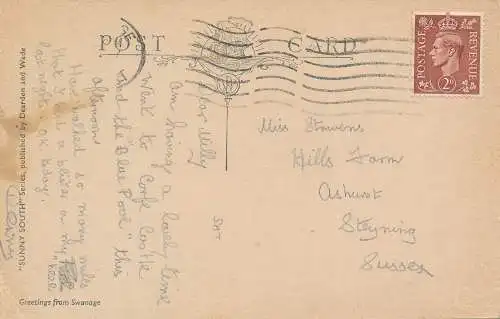 POST CARD
POSTAGE REVENUE
2D
SAT
Dear Milly
Am having a lovely time
Went to Corfe Castle
and the "Blue Pool" this
afternoon
Have walked so many miles
that I had a blister on my
heel
last night. OK today.
Miss Stevens
Hills Farm
Ashurst
Steyning
Sussex
"SUNNY SOUTH" Series, published by Dearden and Wade
Greetings from Swanage